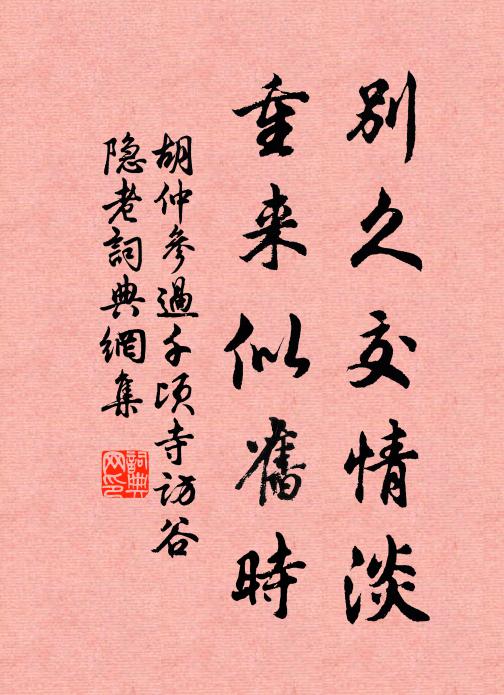 别久交情淡
重来似舊時
胡仲參過千頃寺訪谷
隐老詞典網集
詞典網印